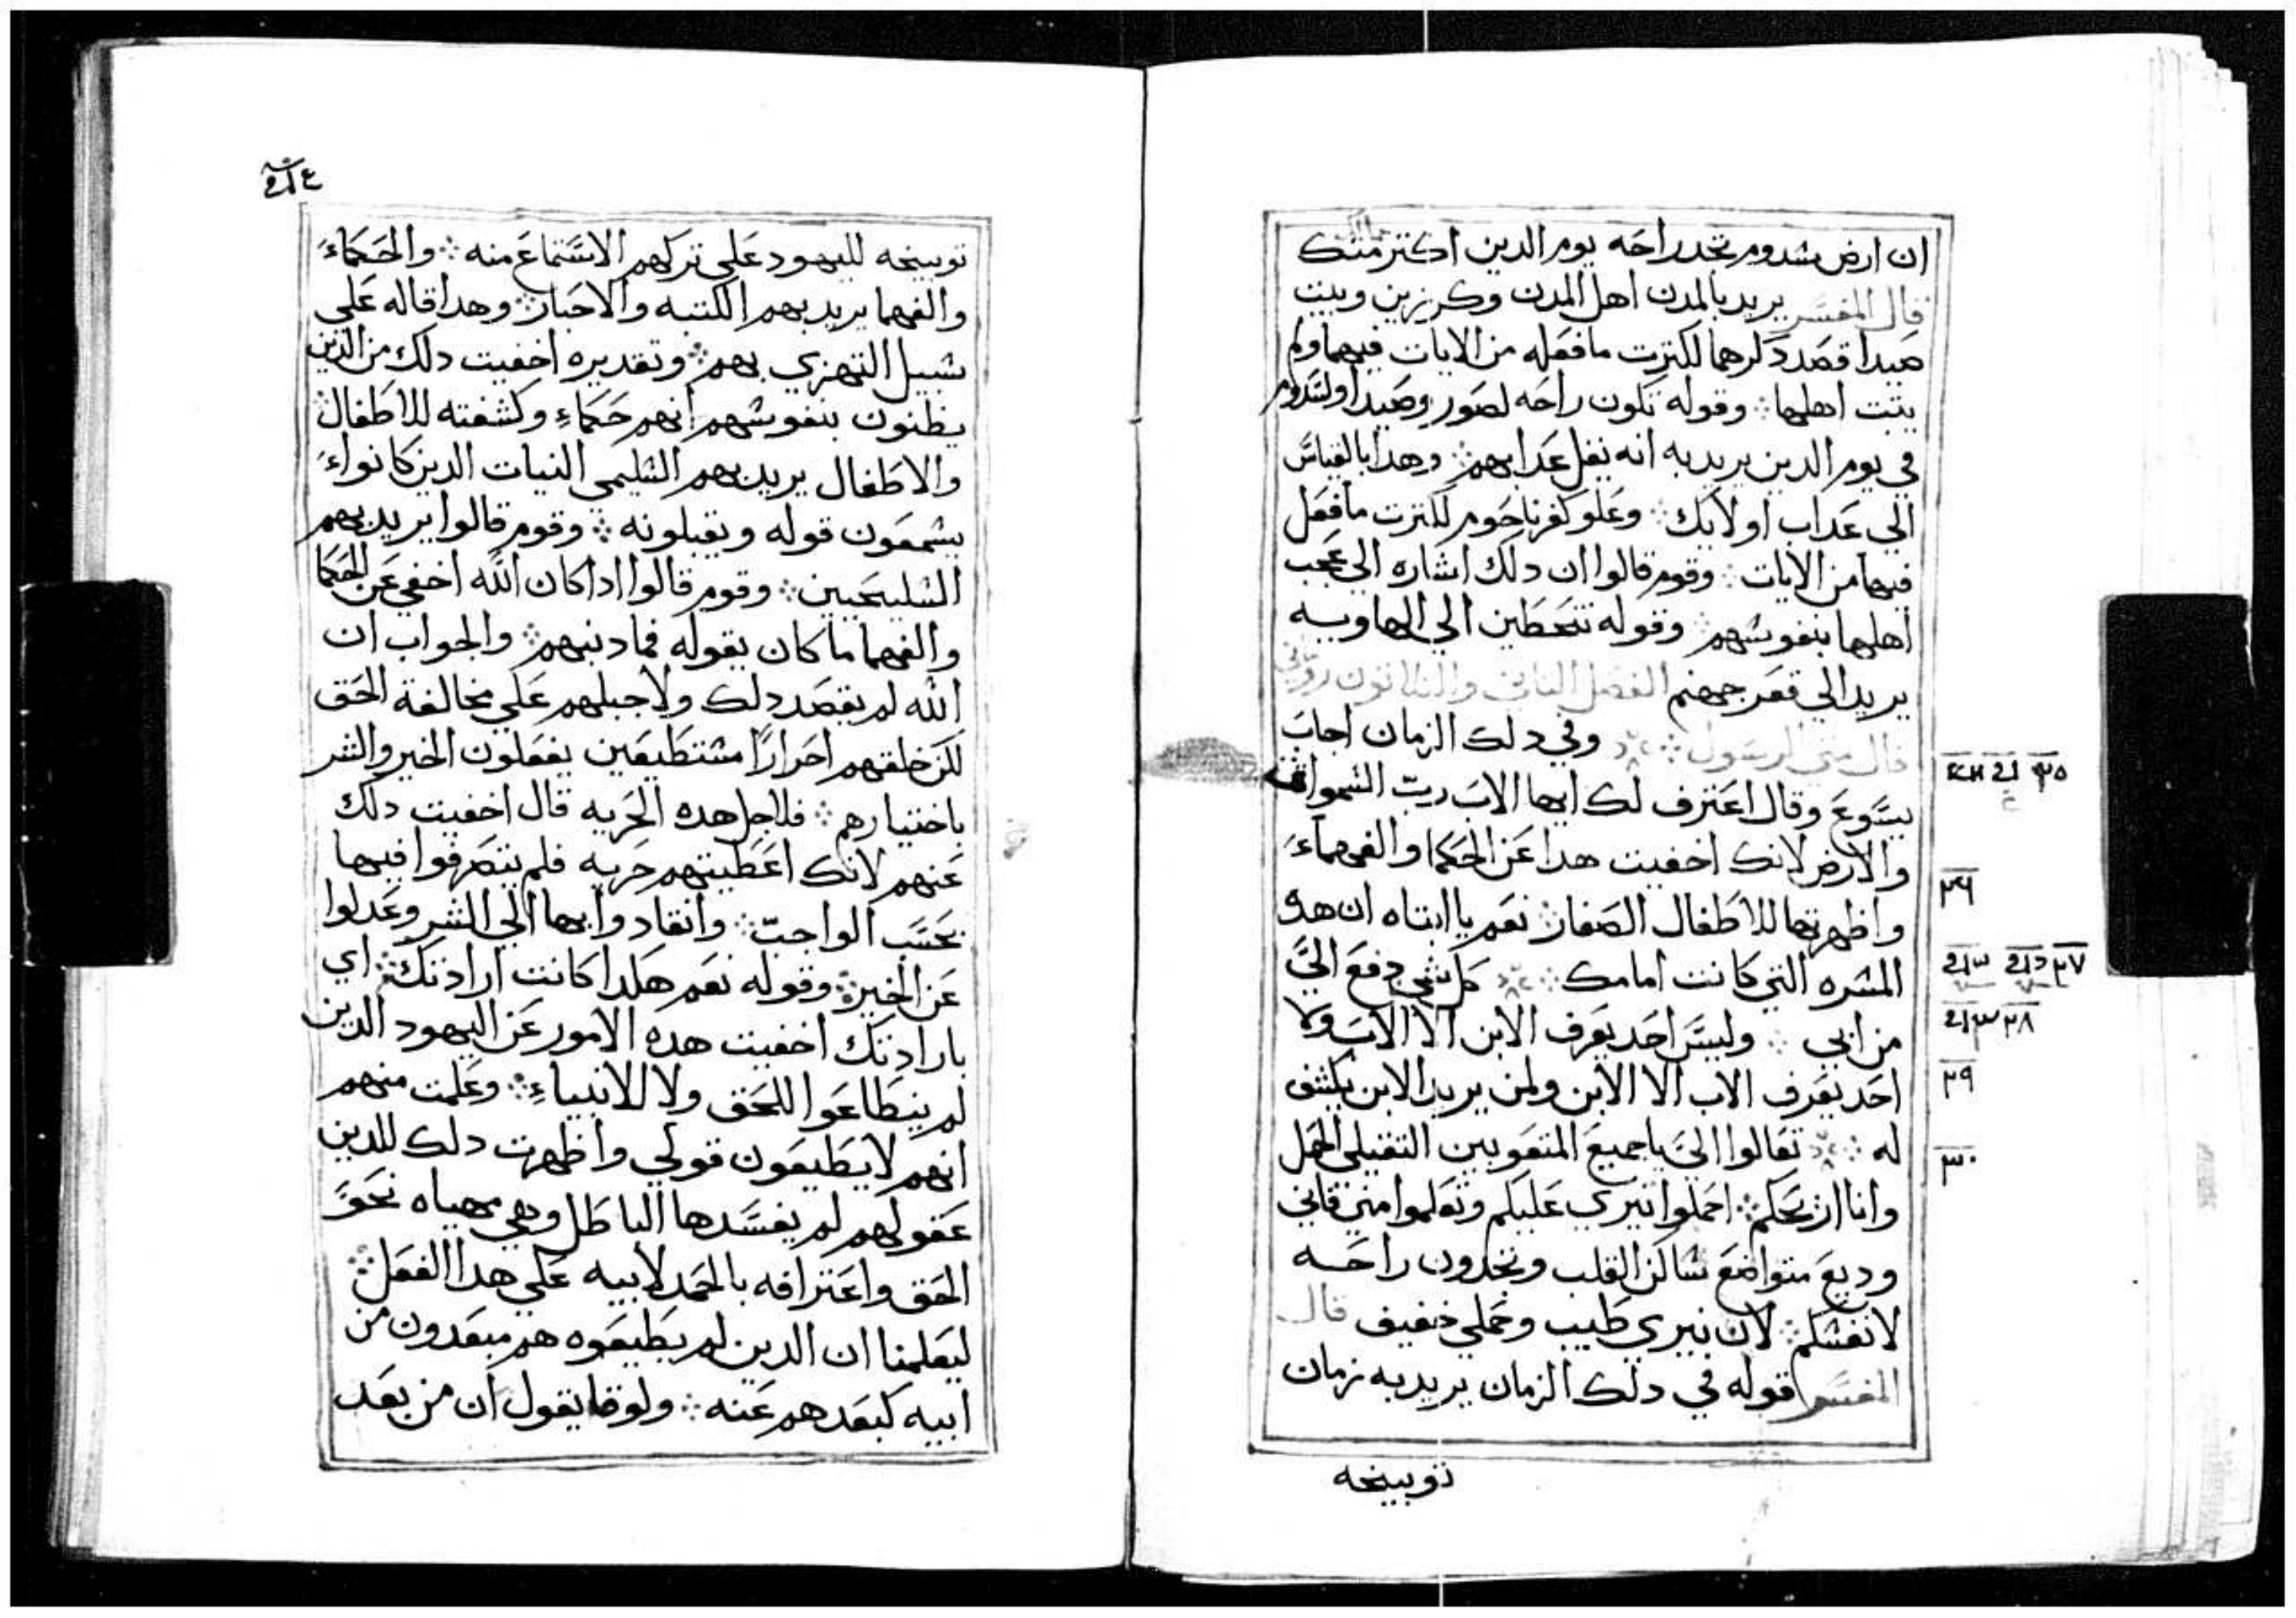 ان ارض سدوم تجد راحه يوم الدين اكتر منك
قال المفسر يريد بالمدن اهل المدن وكرزين وبيت
صيدا قصد دكرهما لكترت مافعله من الايات فيهما ولم
يتب اهلها ܀ وقوله تكون راحه لصور وصيدا ولسدوم
في يوم الدين يريد به انه يقل عدابهم ܀ وهدا بالقياس
الي عداب اولايك ܀ وعلو كفرناحوم لكترت مافعل
فيها من الايات ܀ وقوم قالوا ان دلك اشاره الي عجب
اهلها بنفوسهم ܀ وقوله تتحطين الي الهاويه
يريد الي قعر جهنم الفصل التاني والتلاتون روماني
قال متي الرسول ܀ وفي دلك الزمان اجاب
يسوع وقال اعترف لك ايها الاب رب السموات
والارض لانك اخفيت هدا عن الحكما والفهماء
واظهرتها للاطفال الصغار ܀ نعم يا ابتاه ان هده
المسره التي كانت امامك ܀ كل شي دفع الي
من ابي ܀ وليس احد يعرف الابن الا الاب ولا
احد يعرف الاب الا الابن ولمن يريد الابن يكشف
له ܀ تعالوا الي يا جميع المتعوبين التقيلي الحمل
وانا اريحكم ܀ احملوا نيري عليكم وتعلموا مني فاني
وديع متواضع ساكن القلب وتجدون راحه
لانفسكم ܀ لان نيري طيب وحملي خفيف قال
المفسر قوله في دلك الزمان يريد به زمان
توبيخه
٢٥
٢٦
٢٧
٢٨
٢٩
٣٠
توبيخه لليهود علي تركهم الاستماع منه ܀ والحكماء
والفهما يريد بهم الكتبه والاحبار ܀ وهدا قاله علي
سبيل التهزي بهم ܀ وتقديره اخفيت دلك من الدين
يظنون بنفوسهم انهم حكماء وكشفته للاطفال ܀
والاطفال يريد بهم السليمي النيات الدين كانواء
يسمعون قوله ويقبلونه ܀ وقوم قالوا يريد بهم
السليحيين ܀ وقوم قالوا ادا كان الله اخفي عن الحكما
والفهما ما كان يقوله فما دنبهم ܀ والجواب ان
الله لم يقصد دلك ولا جبلهم علي مخالفة الحق
لكن خلقهم احرارًا مستطيعين يفعلون الخير والشر
باختيارهم ܀ فلاجل هده الحريه قال اخفيت دلك
عنهم لانك اعطيتهم حريه فلم يتصرفوا فيها
بحسب الواجب ܀ وانقادوا بها الي الشر وعدلوا
عن الخير ܀ وقوله نعم هكدا كانت ارادتك ܀ اي
بارادتك اخفيت هده الامور عن اليهود الدين
لم ينطاعوا للحق ولا للانبياء ܀ وعلمت منهم
انهم لا يطيعون قولي واظهرت دلك للدين
عقولهم لم يفسدها الباطل وهي مهياه نحو
الحق واعترافه بالحمد لابيه علي هدا الفعل ܀
ليعلمنا ان الدين لم يطيعوه هم مبعدون من
ابيه كبعدهم عنه ܀ ولوقا يقول ان من بعد